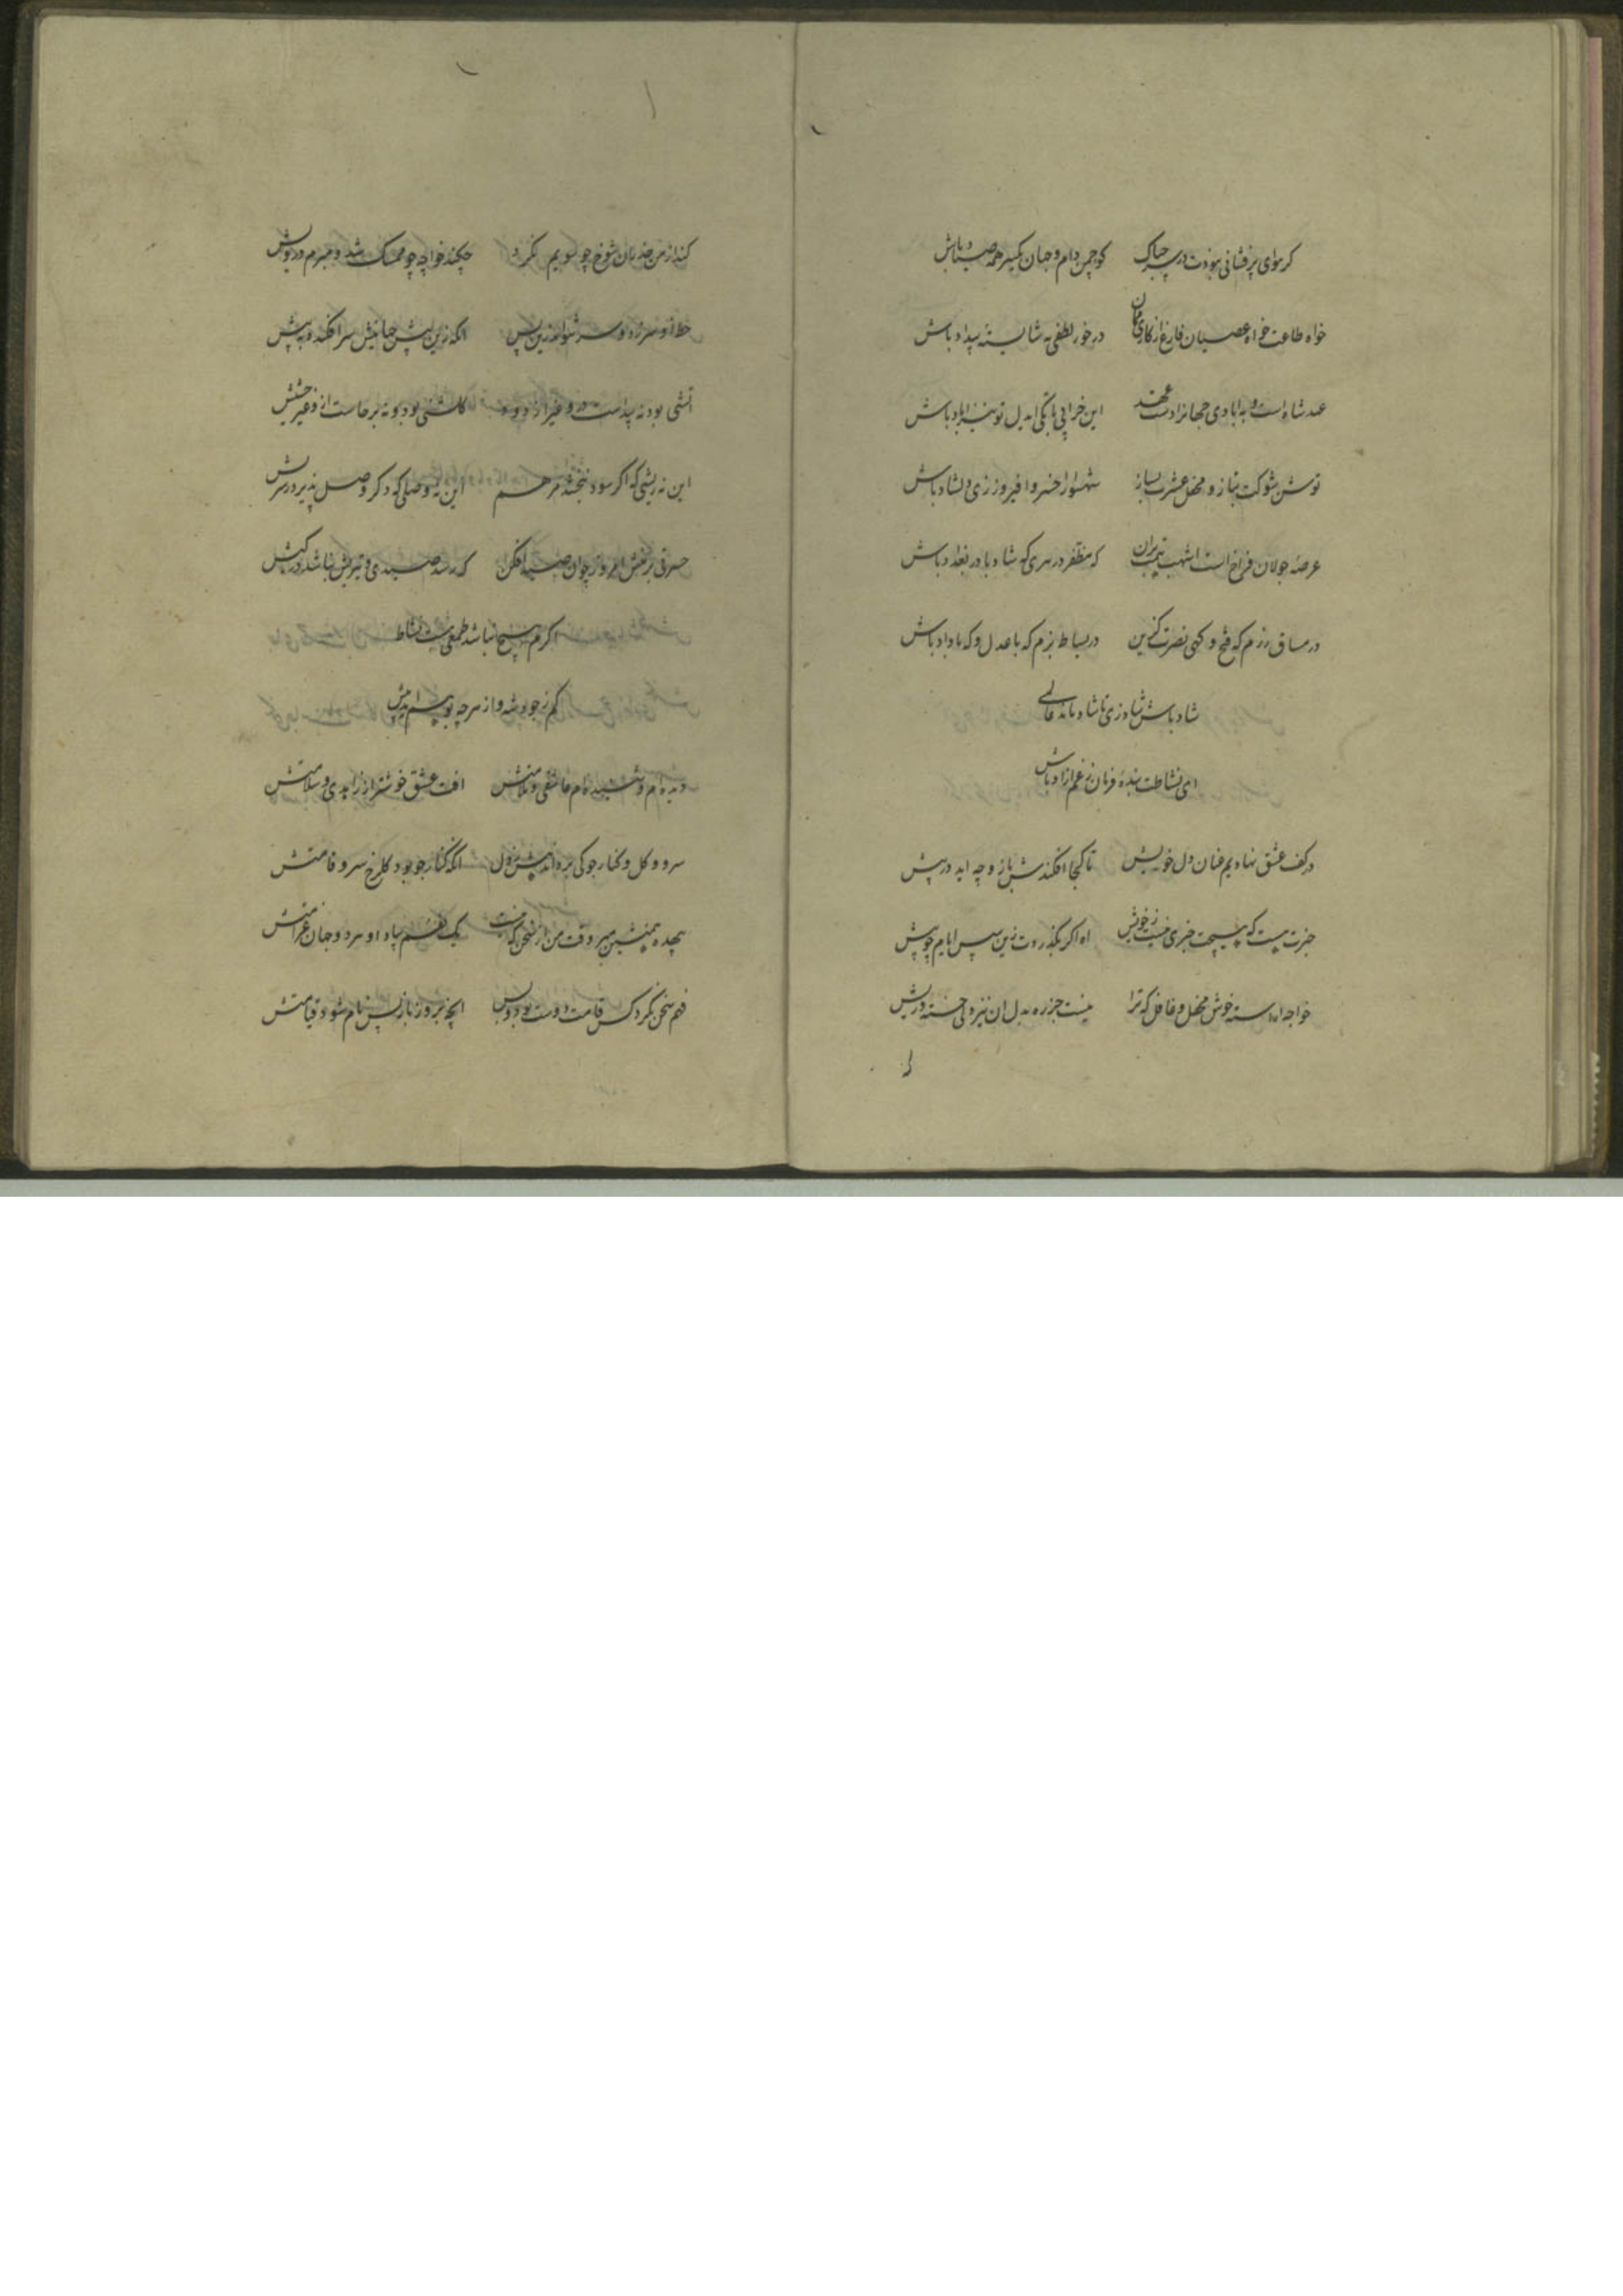 کر هوای پرفشانی نبودت در سر چه باک کو چمن دام و جهان یکسر همه صیاد باش
خواه طاعت خواه عصیان فارغ از کاری ممان در خور لطفی نه شایسته بیداد باش
عهد شاه است و به ابادی جهانرا دست عهد این خرابی تا بکی ایدل تو نیز اباد باش
توسن شوکت بتاز و محفل عشرت بساز شهسوارا خسروا فیروز زی و شاد باش
عرصه جولان فراخ است اشهب بران که مظفر در هری که شاد با در بغداد باش
در مساق رزم که فتح و کهی نصرت کزین در بساط بزم که با عدل و که با داد باش
شاد باش شاد زی تا شاد ماند عالمی
ای نشاطت بنده فرمان ز غم ازاد باش
در کف عشق نهادیم عنان دل خویش تا کجا افکندش باز و چه اید در پیش
خبرت نیست که هیچت خبری نیست ز خویش اه اکر بکذردت زین سپس ایام چو پیش
خواجه اراسته خوش محفل و غافل که ترا نیست جز ره بدل ان نیز ولی خسته و ریش
کند از من حذر ان شوخ چو کویم نکرد چکند خواجه چو ممسک شد و مبرم درویش
خط او سر زد و سر شد زین پس انکه زین پیش سر افکنده به پیش
اتشی بود نه پیداست درو غیر از دود کلشنی بود و نه برجاست ازو غیر حشیش
این نه ریشی که اکر سود نبخشد مرهم این نه وصلی که دکر وصل پذیرد
حسرتی بر دلش امروز چو ان صید افکن که رسد صیدی و تیریش نباشد در کیش
اکرم هیچ نباشد طمعی نیست نشاط
کم ز جود شه و از هر چه بود بیش
دیده ام و شنیده ام عاشقی و ملامتش افت عشق خوشتر از زاهدی و سلامتش
سرو و کل و کنار جو کی برد اندهش ز دل انکه کنار جو بود کلرخ سرو قامتش
بیهده همنشین مبر وقت من از سخن که نیست یک نفسم بیاد او هر دو جهان غرامتش
فهم سخن نکرد کس قامت دوست بود و بس انچه بروز بازپس نام شود قیامتش